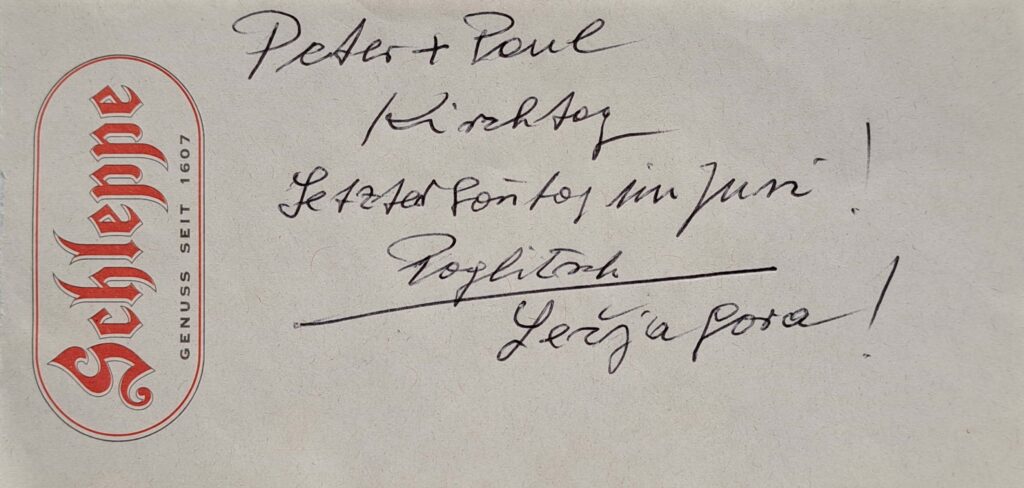 Schleppe
GENUSS SEIT 1607
Peter + Paul
Kirchtag
Letzter Son̄tag im Juni !
Poglitsch
Lečja Gora !